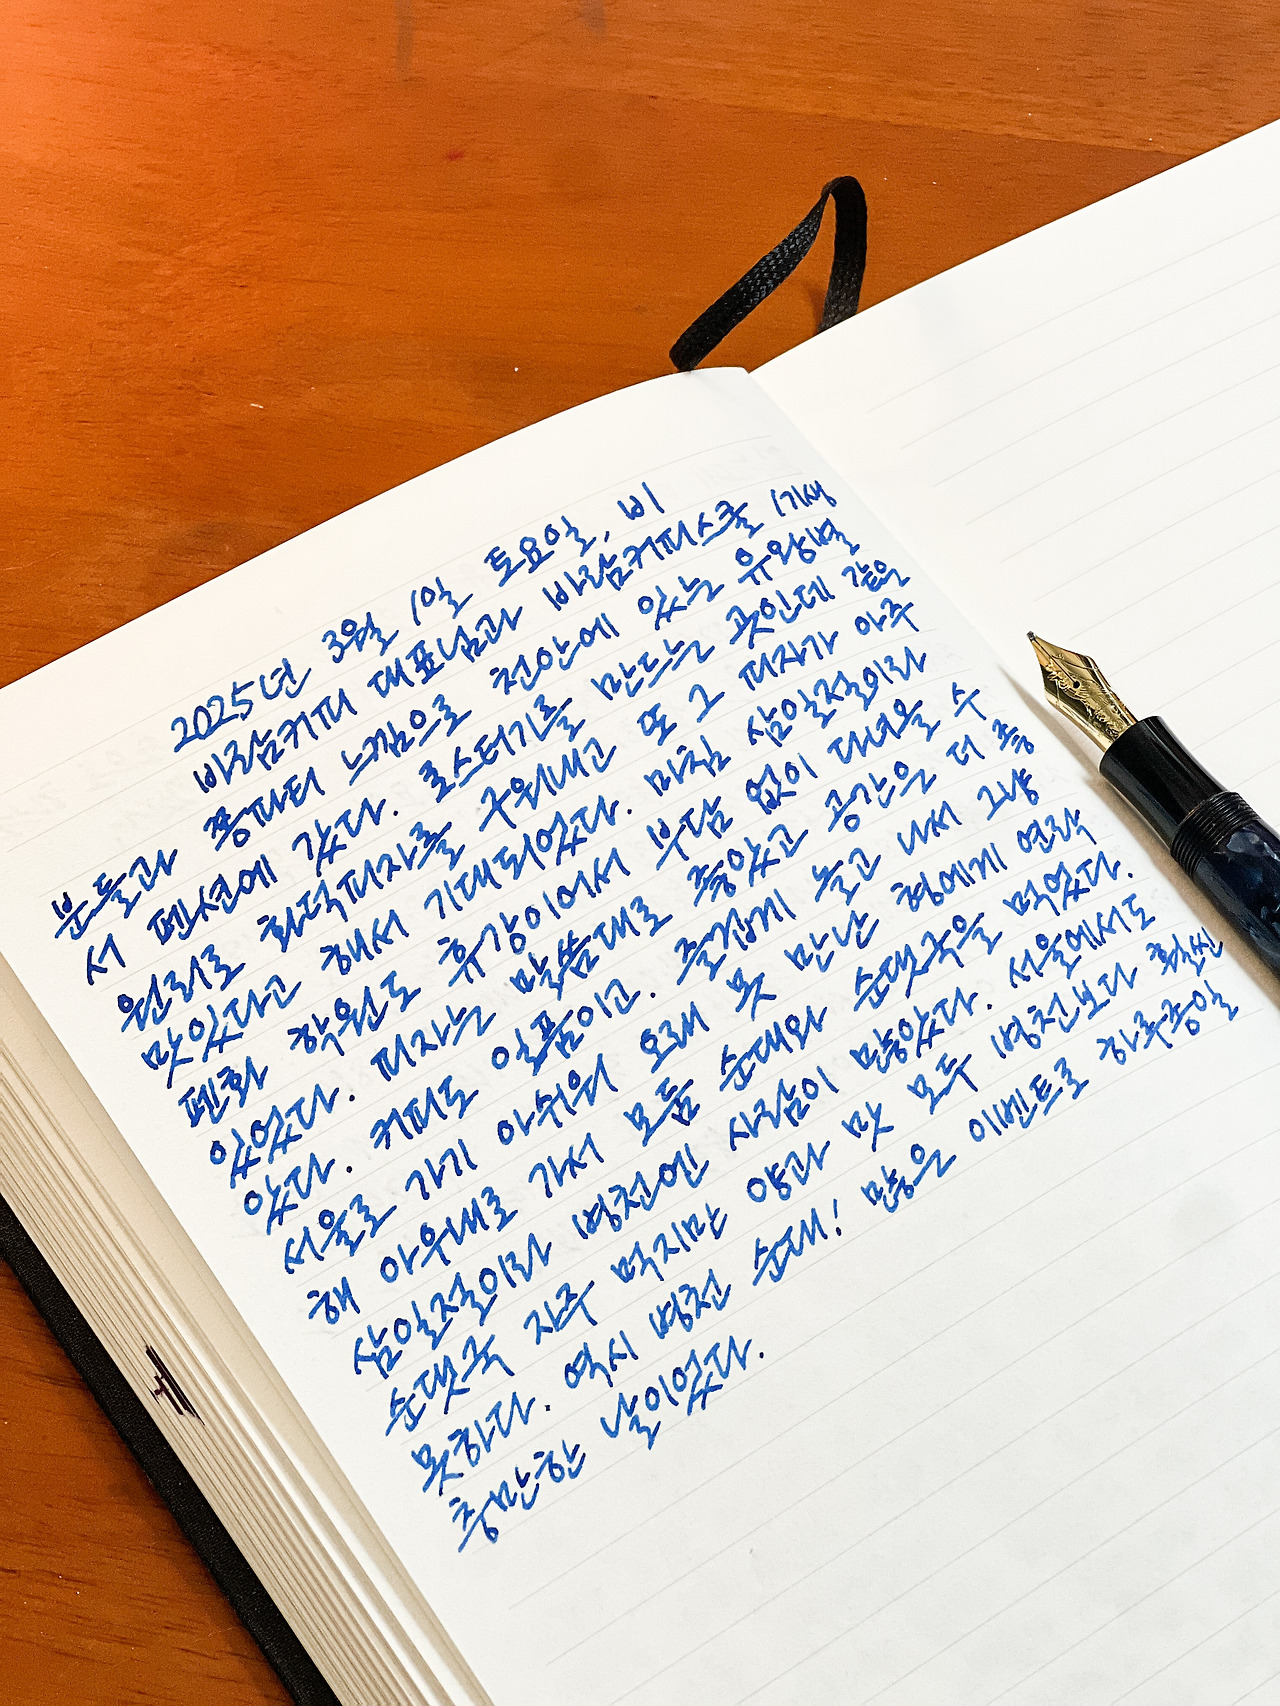 2025년 3월 1일 토요일, 비
바람커피 대표님과 바람커피스쿨 1기생
분들과 쫑파티 느낌으로 천안에 있는 유왕별
서 펜션에 갔다. 로스터기를 만드는 곳인데 같은
원리로 화덕피자를 구워내고 또 그 피자가 아주
맛있다고 해서 기대되었다. 마침 삼일절이라
펜화 학원도 휴강이어서 부담 없이 다녀올 수
있었다. 피자는 말씀대로 좋았고 공간은 더 좋
았다. 커피도 일품이고. 즐겁게 놀고 나서 그냥
서울로 가기 아쉬워 오래 못 만난 형에게 연락
해 아우내로 가서 모듬 순대와 순댓국을 먹었다.
삼일절이라 병천엔 사람이 많았다. 서울에서도
순댓국 자주 먹지만 양과 맛 모두 병천보다 훨씬
못하다. 역시 병천 순대! 많은 이벤트로 하루종일
충만한 날이었다.